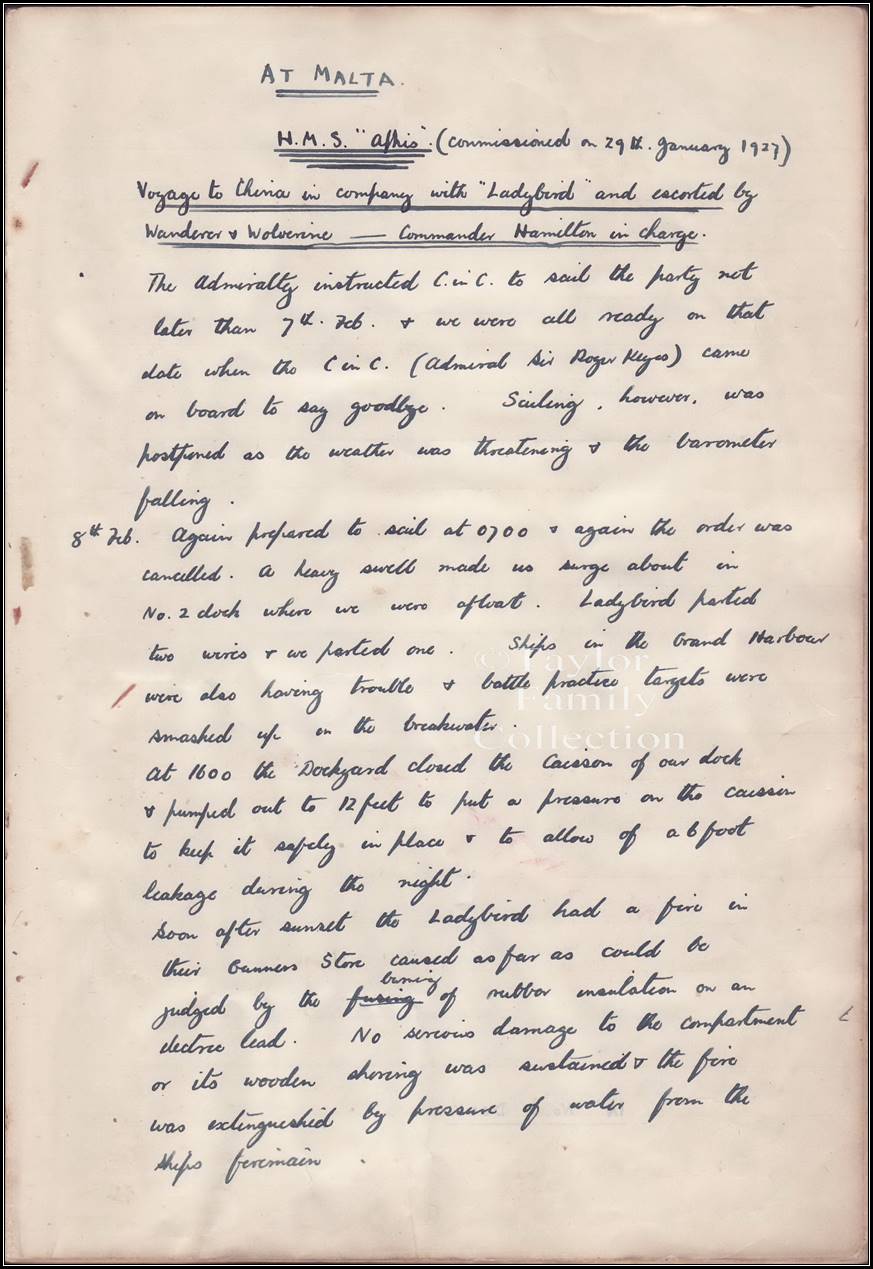 AT MALTA.
H.M.S. "Aphis". (Commissioned on 29th. January 1927)
Voyage to China in company with "Ladybird" and escorted by
Wanderer & Wolverine — Commander Hamilton in charge.
The Admiralty instructed C. in C. to sail the party not
later than 7th. Feb. & we were all ready on that
date when the C in C. (Admiral Sir Roger Keyes) came
on board to say goodbye. Sailing, however, was
postponed as the weather was threatening & the barometer
falling.
8th Feb. Again prepared to sail at 0700 & again the order was
cancelled. A heavy swell made us surge about in
No. 2 dock where we were afloat. Ladybird parted
two wires & we parted one. Ships in the Grand Harbour
were also having trouble & battle practice targets were
smashed up on the breakwater.
At 1600 the Dockyard closed the Caisson of our dock
& pumped out to 12 feet to put a pressure on the caisson
to keep it safely in place & to allow of a 6 foot
leakage during the night.
Soon after sunset the Ladybird had a fire in
their Gunners Store caused as far as could be
burning
judged by the fusing of rubber insulation on an
electric lead. No serious damage to the compartment
or its wooden shoring was sustained & the fire
was extinguished by pressure of water from the
ships firemain.
© Taylor
Family
Collection